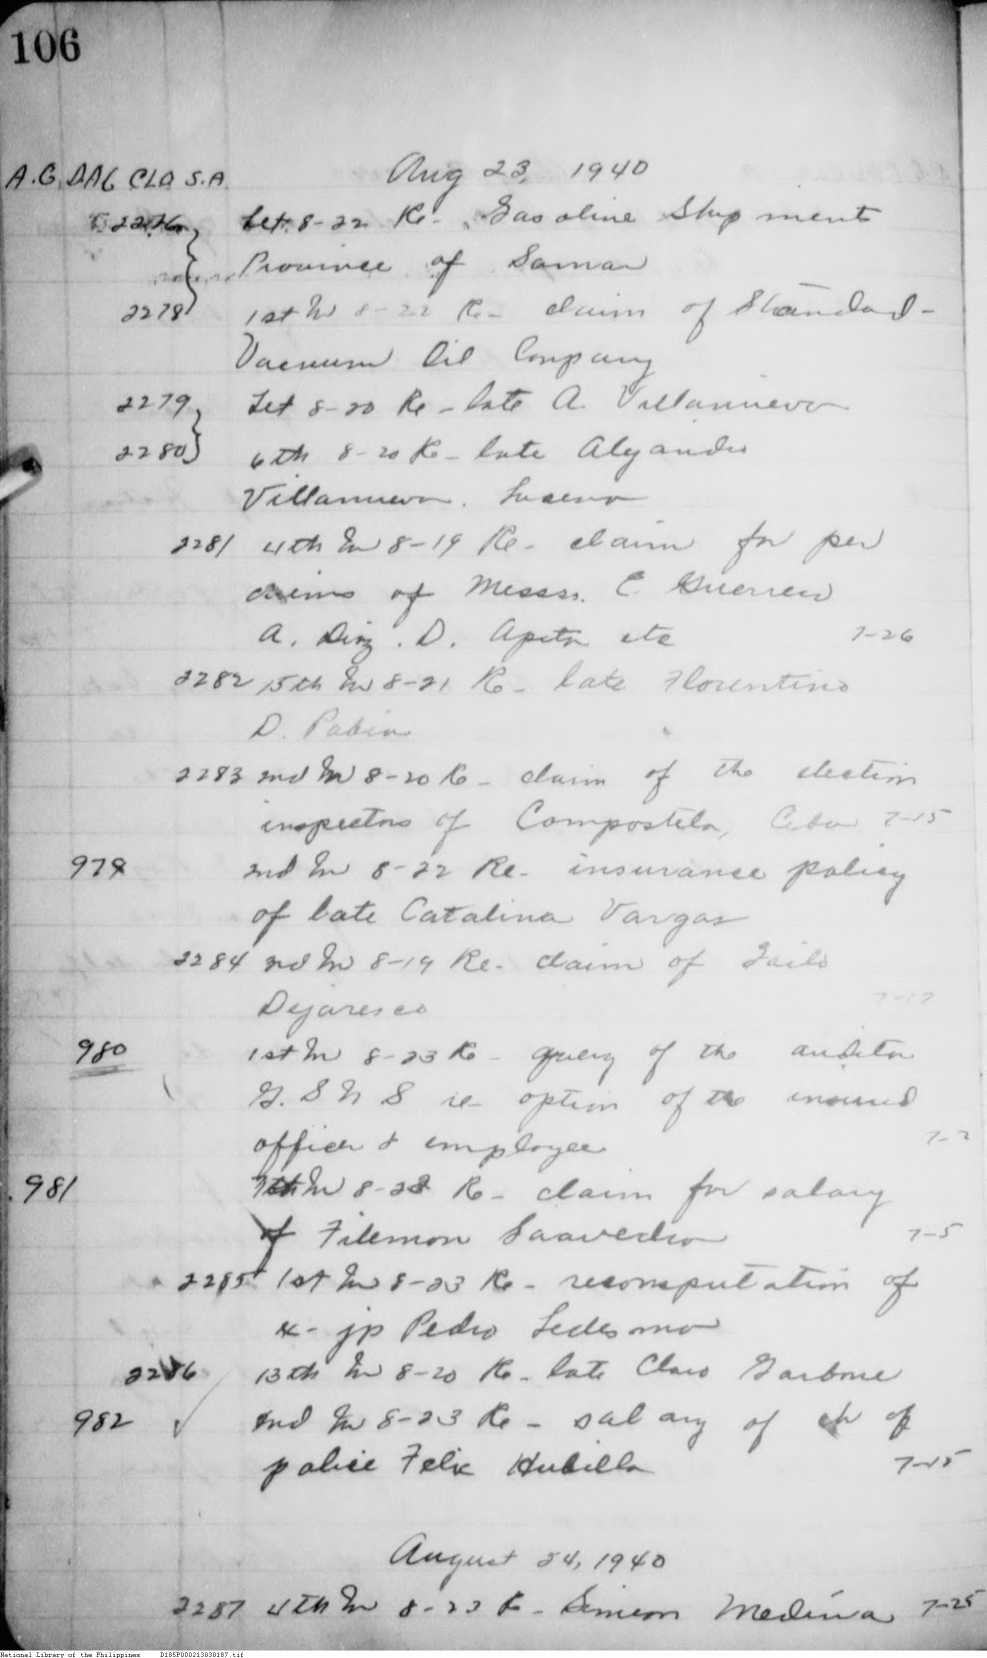 106
A.G. DAG CLD S.A. Aug 23, 1940
2276 Let. 8-22 Re- Gasoline Shipment
Province of Samar
2278 1st In 8-22 Re- claim of Standard-
Vacuum Oil Company
2279 Let 8-20 Re- late A. Villanueva
2280 6th 8-20 Re- late Alejandro
Villanueva.
2281 4th In 8-19 Re- claim for per
diems of Messrs. C. Guerrero
A. Diaz. D. etc 7-26
2282 15th In 8-21 Re- late Florentino
D. Pabin
2283 2nd In 8-20 Re- claim of the election
inspectors of Compostela, Cebu 7-15
979 2nd In 8-22 Re- insurance policy
of late Catalina Vargas
2284 2nd In 8-19 Re- claim of
Dejaresco 7-17
980 1st In 8-23 Re- query of the auditor
G. S I S re- option of the insured
officer & employee 7-2
981 7th In 8-23 Re- claim for salary
of Filemon Saavedra 7-5
2285 1st In 8-23 Re- recomputation of
x- jp Pedro Ledesma
2286 13th In 8-20 Re- late Claro
982 2nd In 8-23 Re- salary of ch of
police Felix Hubilla 7-15
August 24, 1940
2287 4th In 8-23 Re- Simeon Medina 7-25
National Library of the Philippines D185P000213838187.tif